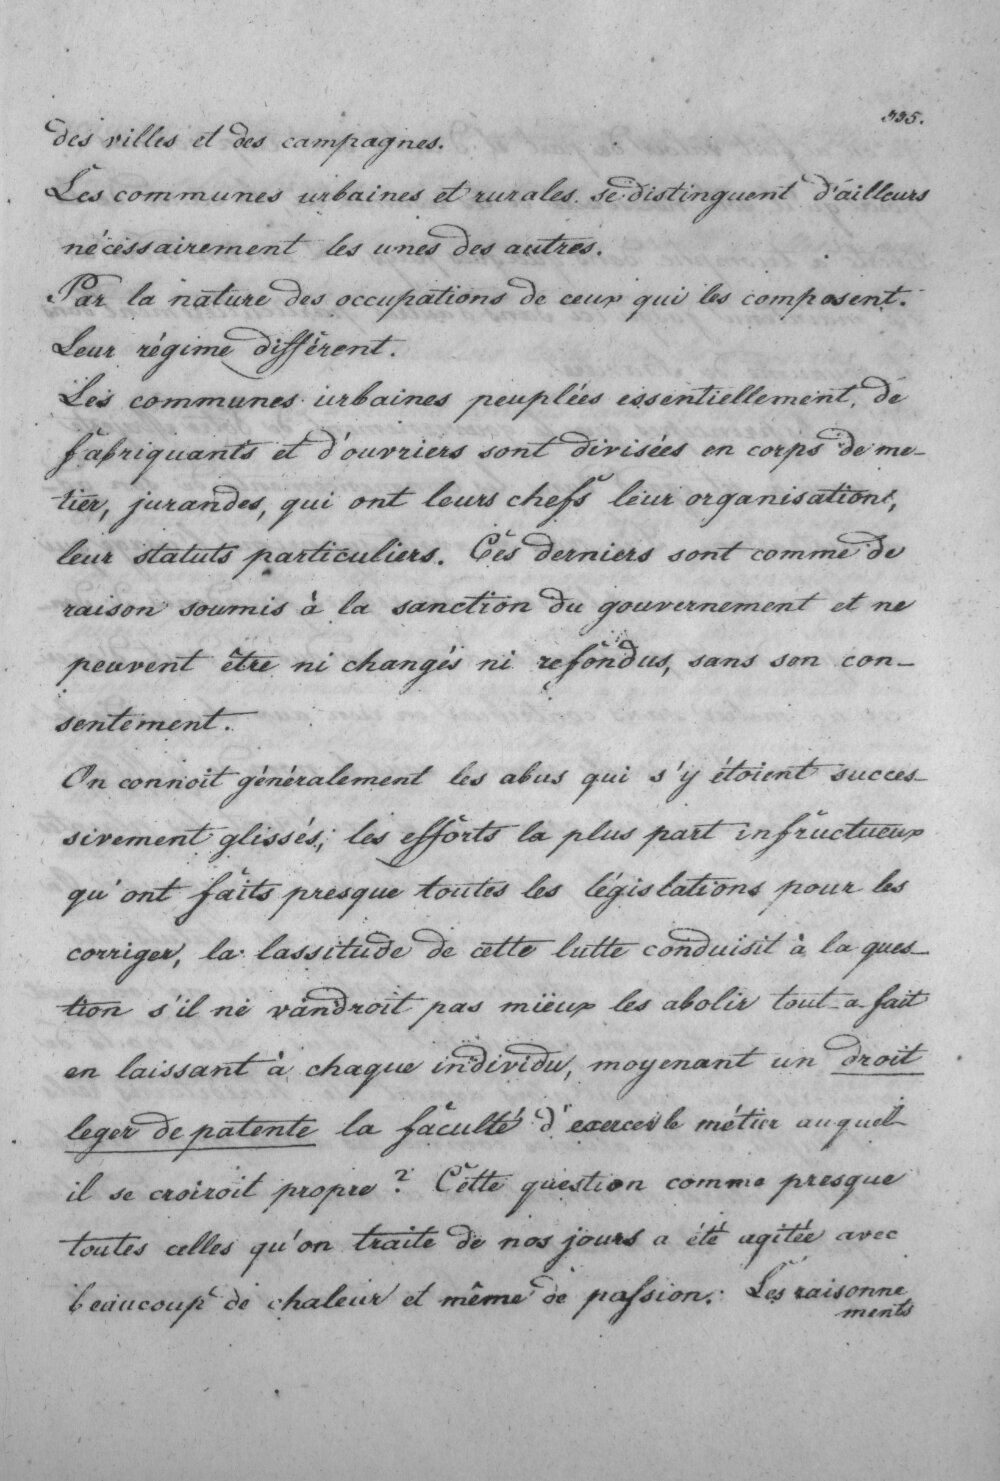 335.
des villes et des campagnes.
Les communes urbaines et rurales se distinguent d'ailleurs
nécessairement les unes des autres.
Par la nature des occupations de ceux qui les composent.
Leur régime différent.
Les communes urbaines peuplées essentiellement, de
fabriquants et d'ouvriers sont divisées en corps de me-
tier, jurandes, qui ont leurs chefs leur organisation,
leur statuts particuliers. Ces derniers sont comme de
raison soumis à la sanction du gouvernement et ne
peuvent être ni changés ni refondus, sans son con-
sentement.
On connoit généralement les abus qui s'y étoient succes-
sivement glissés; les efforts la plus part infructueux
qu'ont faits presque toutes les législations pour les
corriger, la lassitude de cette lutte conduisit à la ques-
tion s'il ne vandroit pas mieux les abolir tout-a-fait
en laissant à chaque individu, moyenant un droit
leger de patente la faculté d'exercer le métier auquel
il se croiroit propre? Cette question comme presque
toutes celles qu'on traite de nos jours a été agitée avec
beaucoup de chaleur et même de passion. Les raisonne
ments